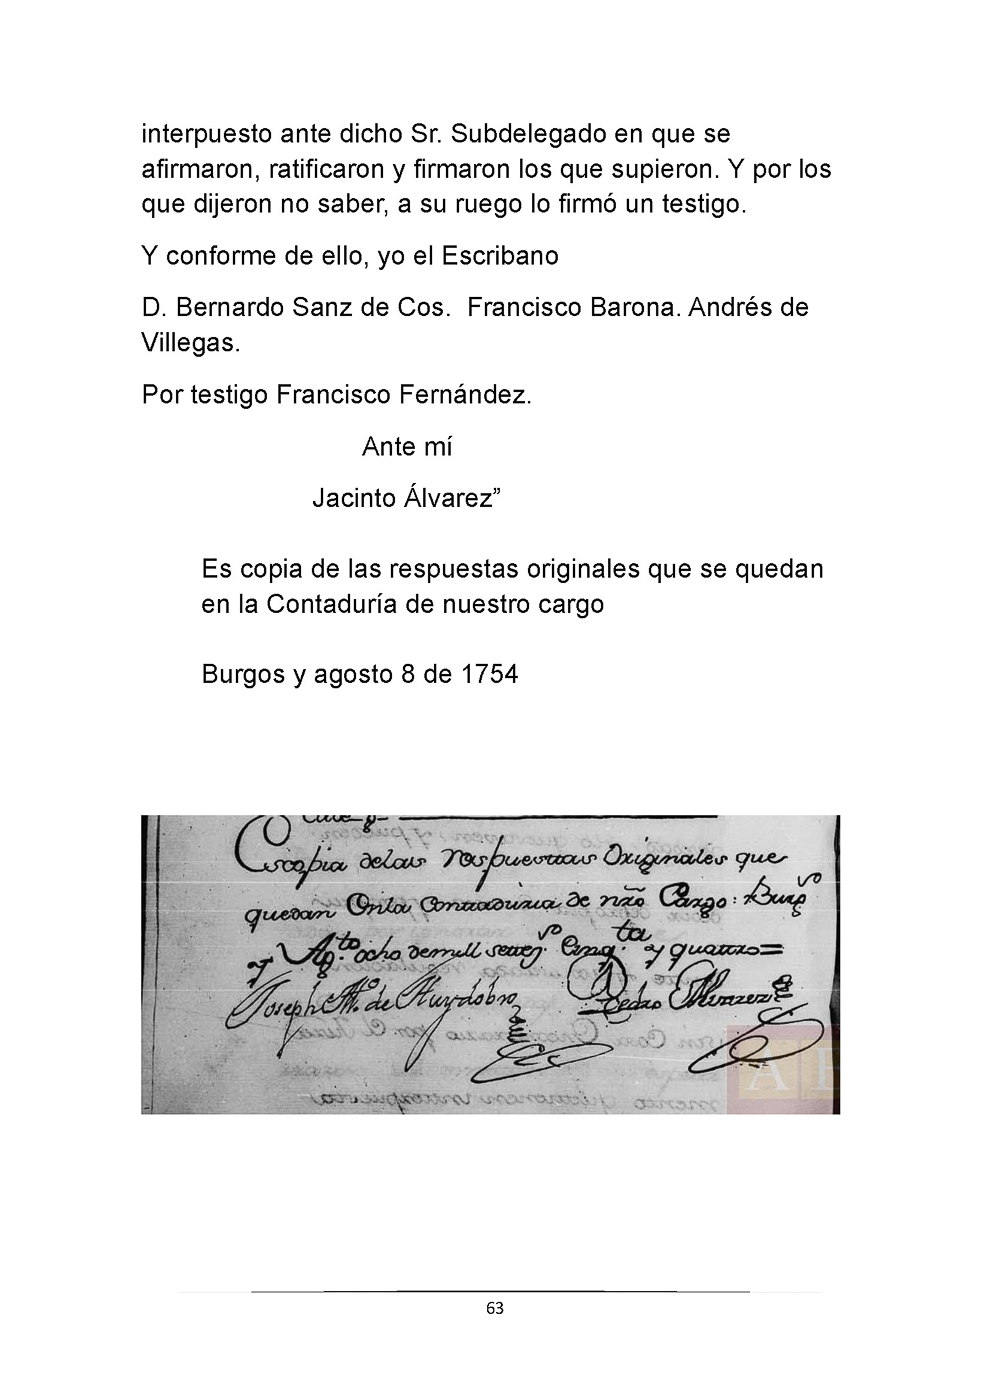 interpuesto ante dicho Sr. Subdelegado en que se
afirmaron, ratificaron y firmaron los que supieron. Y por los
que dijeron no saber, a su ruego lo firmó un testigo.
Y conforme de ello, yo el Escribano
D. Bernardo Sanz de Cos.  Francisco Barona. Andrés de
Villegas.
Por testigo Francisco Fernández.
Ante mí
Jacinto Álvarez”
Es copia de las respuestas originales que se quedan
en la Contaduría de nuestro cargo
Burgos y agosto 8 de 1754
Es copia delas Respuestas Originales que
quedan Enla Contaduria de nro Cargo: Burg.s
y Ag.to ocho demill seteg.s Cinq.ta y quattro=
Joseph Ant.o de Huydobro
Pedro Alvarez
63